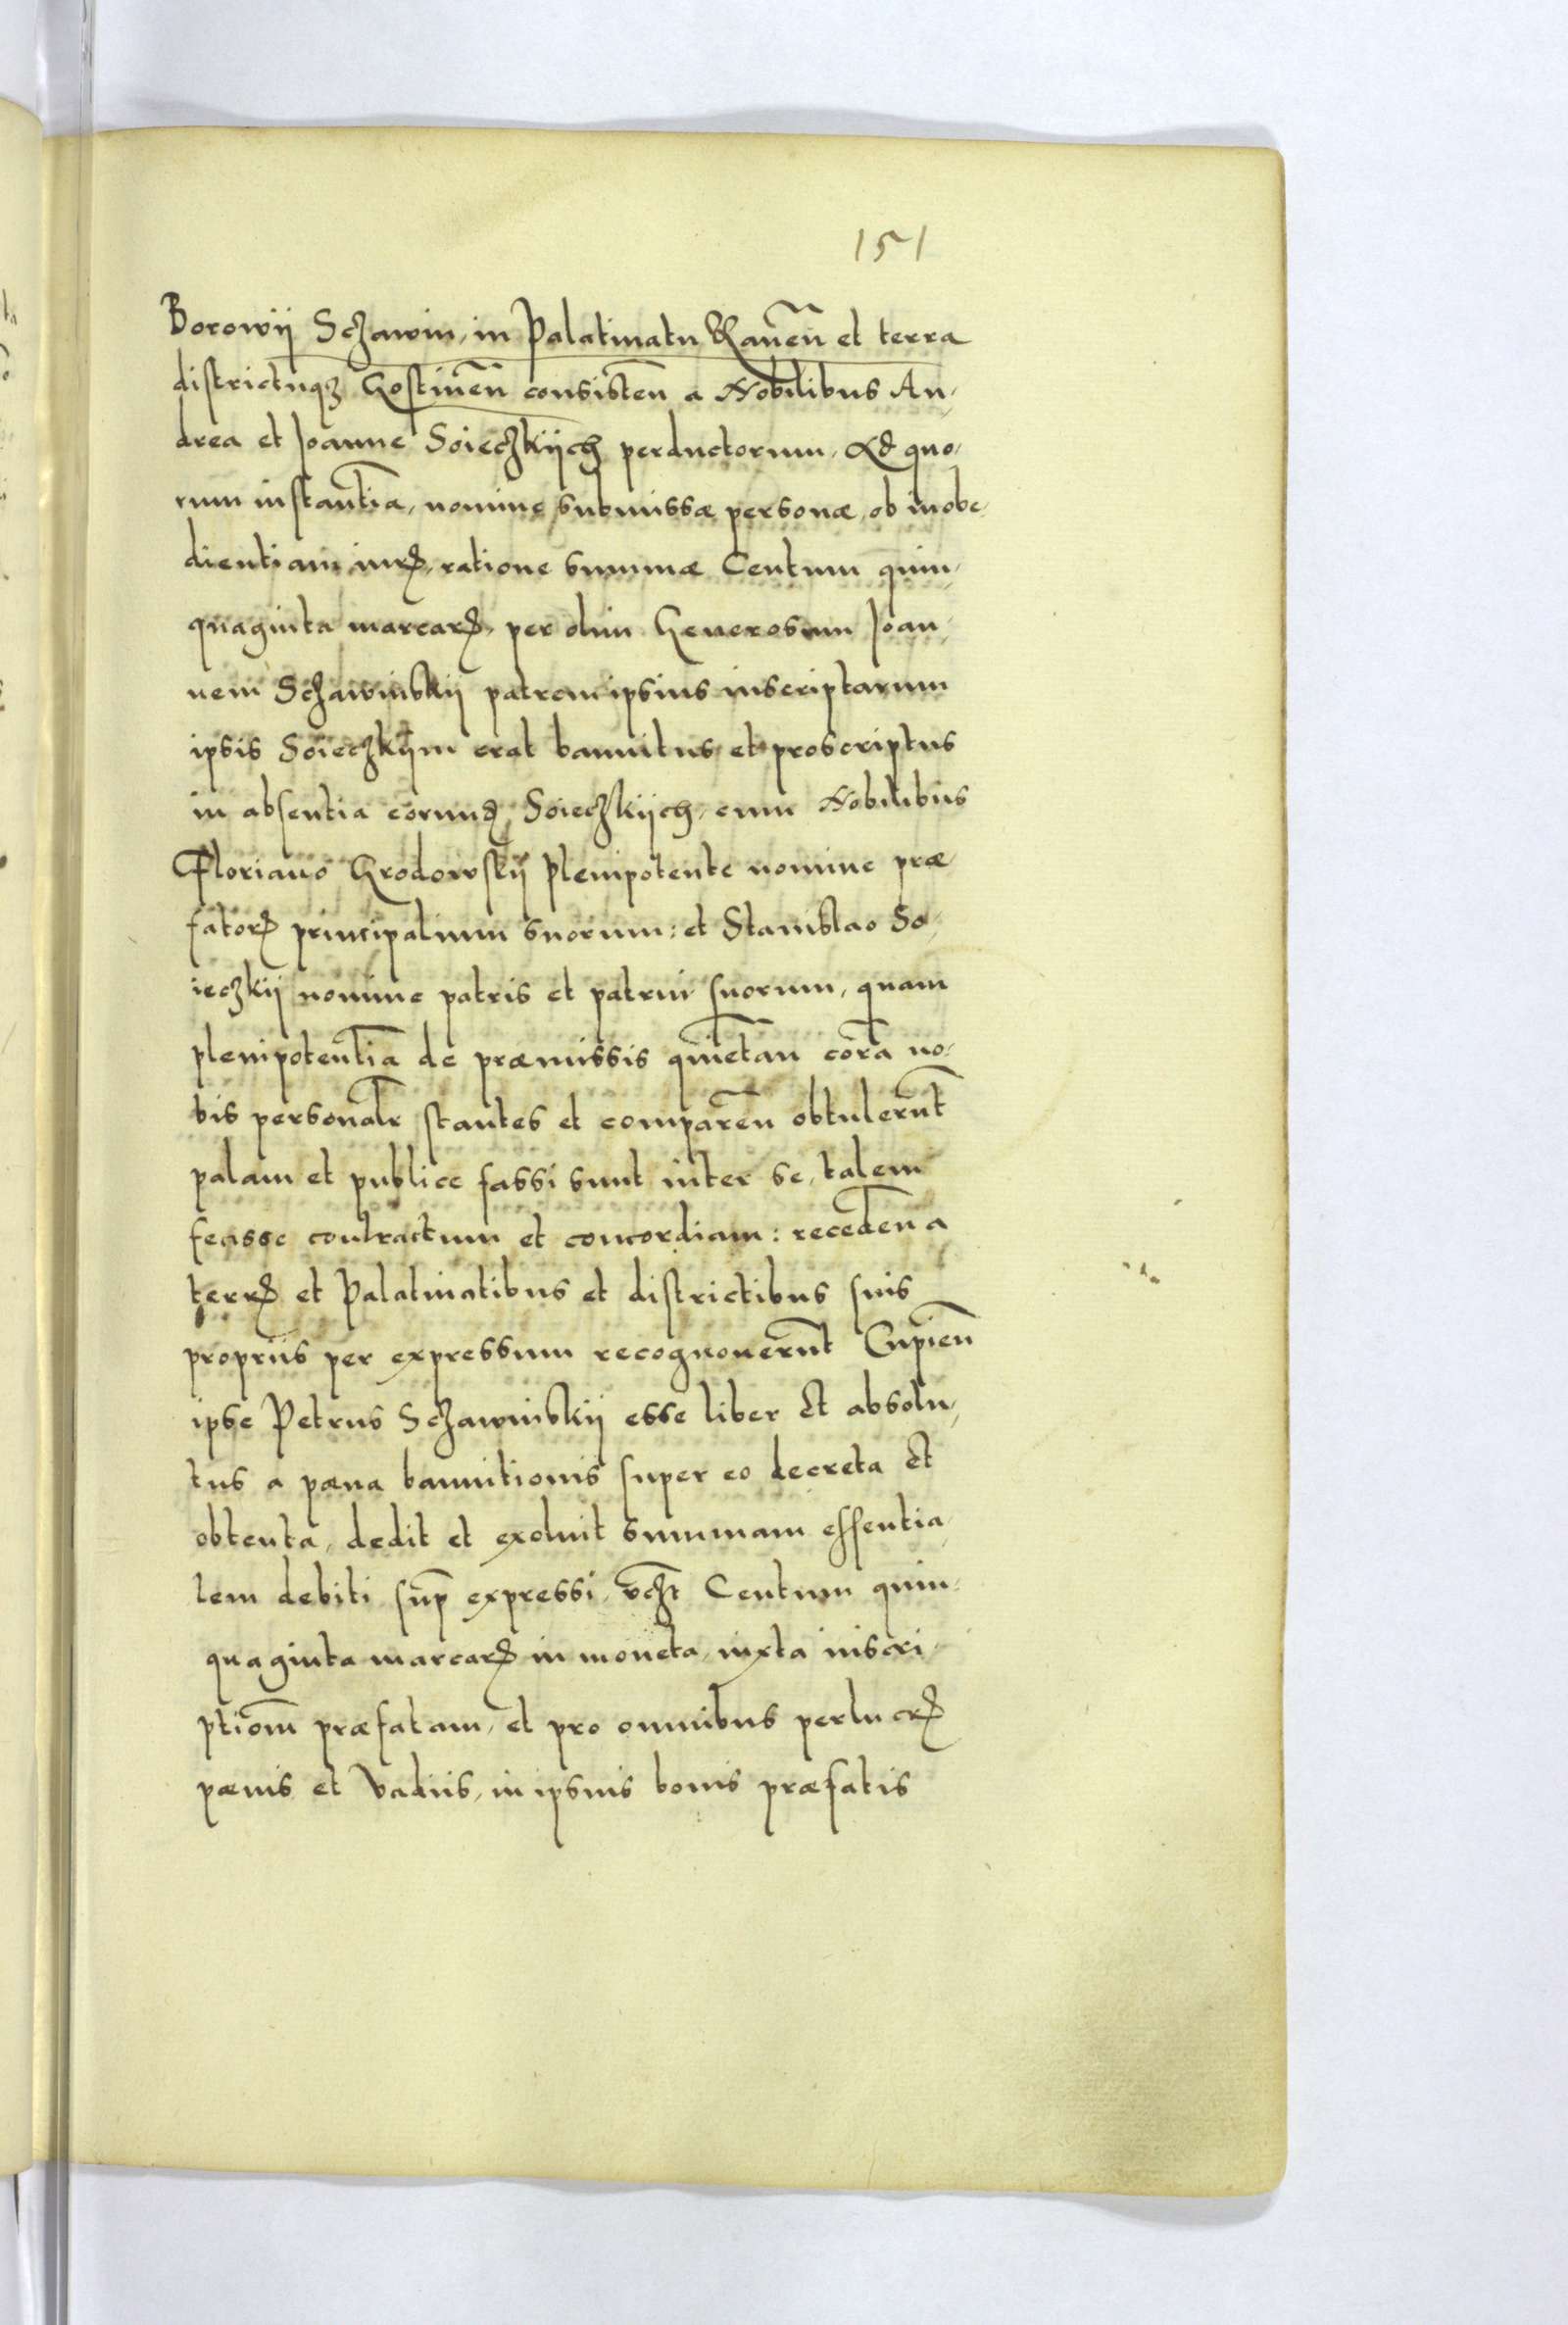 151
Borowÿ Sczawin, in Palatinatu Rauen̄ et terra
districtuqꝫ Gostinen̄ consisten̄ a Nobilibus An-
drea et Joanne Soieczkijch perductorum, Ad quo-
rum instantia, nomine submissæ personæ, ob inobe-
dientiam iurꝭ, ratione summæ Centum quin-
quaginta marcarꝭ, per olim Generosum Joan-
nem Sczawinskij patrem ipsius inscriptarum
ipsis Soieczkijm erat bannitus et proscriptus
in absentia eorundꝭ Soieczkijch, cum Nobilibus
Floriano Grodowskij Plenipotente nomine præ-
fatorꝭ principalium suorum: et Stanislao So-
ieczkij nomine patris et patrui suorum, quam
plenipotentia de præmissis quietan̄ cora̅ no-
bis personalr̄ stantes et comparen̄ obtulerūt
palam et publice fassi sunt inter se, talem
fecisse contractum et concordiam: receden̄ a
terrꝭ et Palatinatibus et districtibus suis
proprijs per expressum recognouerūt Cupien̄
ipse Petrus Sczawinskij esse liber et absolu-
tus a pæna bannitionis super eo decreta et
obtenta, dedit et exoluit summam essentia-
lem debiti sup̄ expressi, vꝫt Centum quin-
quaginta marcarꝭ in moneta, iuxta inscri-
ptiom̄ præfatam, et pro omnibus perlucrꝭ
pænis et Vadijs, in ipsius bonis præfatis